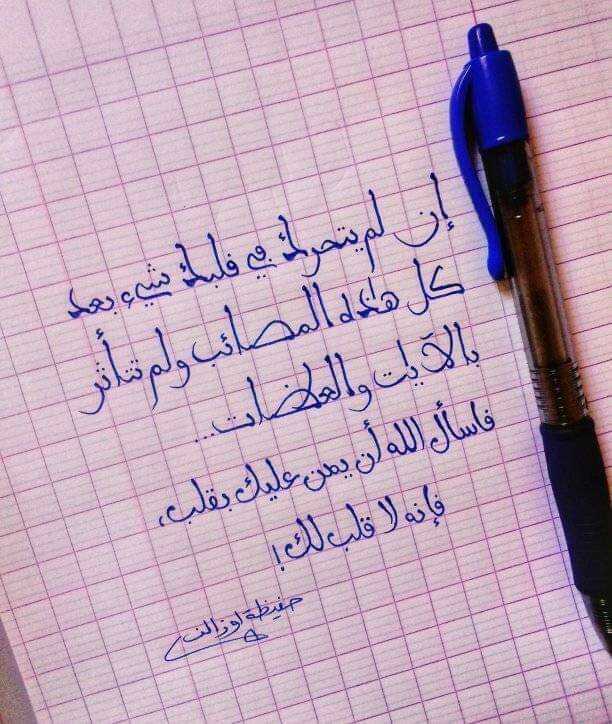 إن لم يتحرك في قلبك شيء بعد
كل هذه المصائب ولم تتأثر
بالآيات والعظات...
فاسأل الله أن يمن عليك بقلب،
فإنه لا قلب لك!
حفيظة